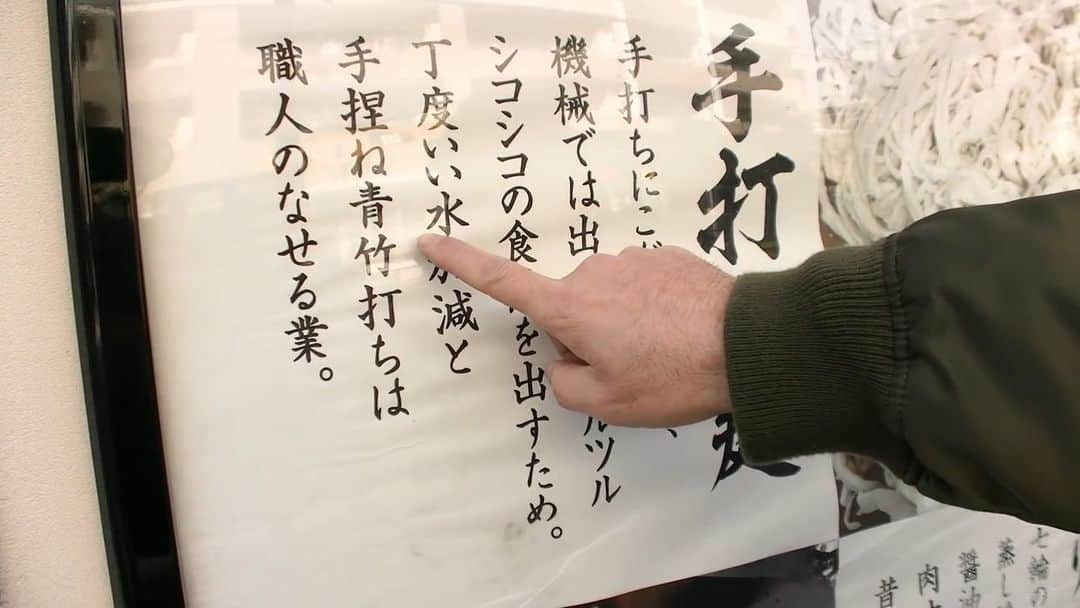 手打
手打ちにこ
機械では出 ルツル
シコシコの食 を出すため。
丁度いい水 減と
手捏ね青竹打ちは
職人のなせる業。
七輪の
蒸し
醤油
肉
昔